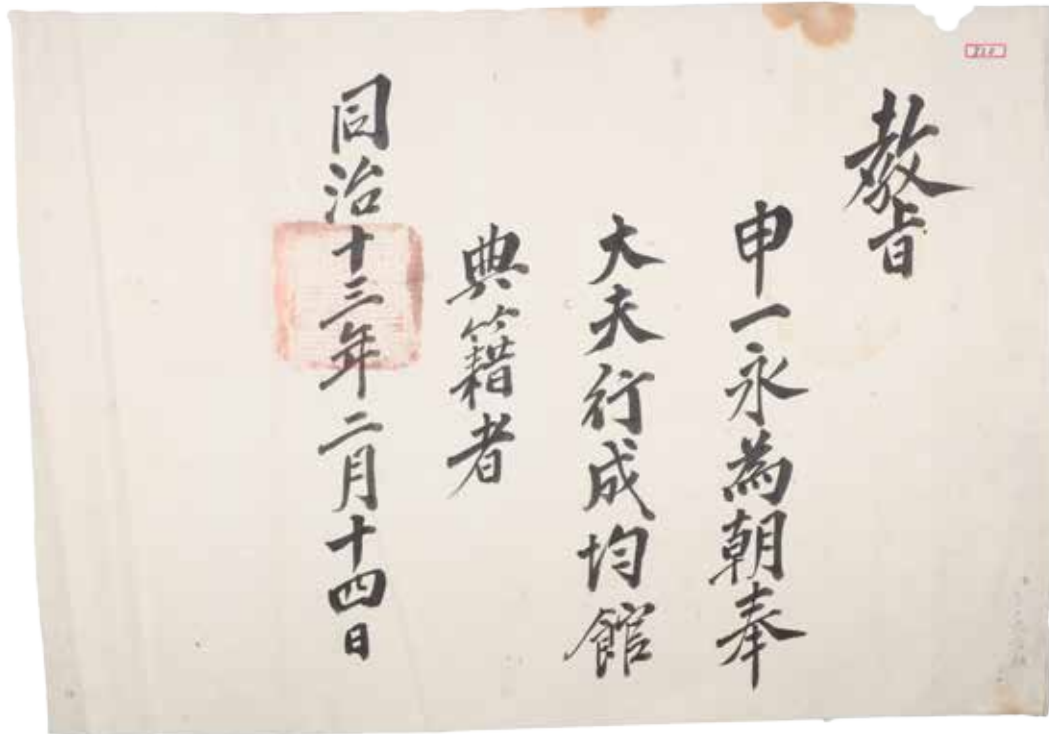 教旨
申一永為朝奉
大夫行成均館
典籍者
同治十三年二月十四日